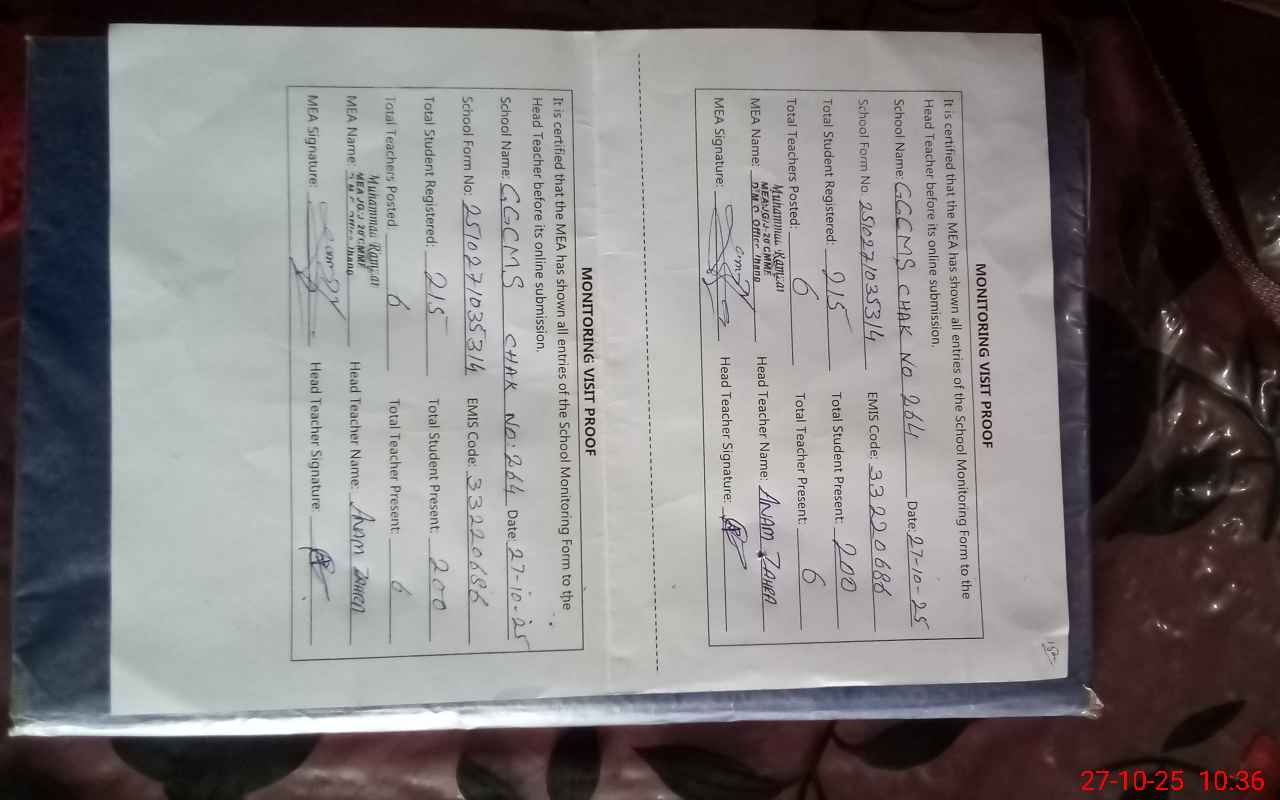 MONITORING VISIT PROOF
It is certified that the MEA has shown all entries of the School Monitoring Form to the
Head Teacher before its online submission.
School Name: GGCMS CHAK NO 264 Date: 27-10-25
School Form No. 25102710353/4 EMIS Code: 33220686
Total Student Registered: 215 Total Student Present: 200
Total Teachers Posted: 6 Total Teacher Present: 6
MEA Name: Muhammad Head Teacher Name: ANAM ZAHRA
MEA Signature: Head Teacher Signature:
MONITORING VISIT PROOF
It is certified that the MEA has shown all entries of the School Monitoring Form to the
Head Teacher before its online submission.
School Name: GGCMS CHAK NO: 264 Date: 27-10-25
School Form No: 25102710353/4 EMIS Code: 33220686
Total Student Registered: 215 Total Student Present: 200
Total Teachers Posted 6 Total Teacher Present: 6
MEA Name: Muhammad Head Teacher Name: ANAM ZAHRA
MEA Signature: Head Teacher Signature:
27-10-25 10:36